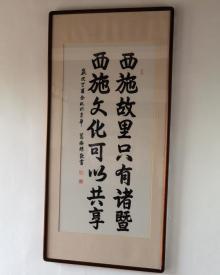 西施故里只有诸暨
西施文化可以共享